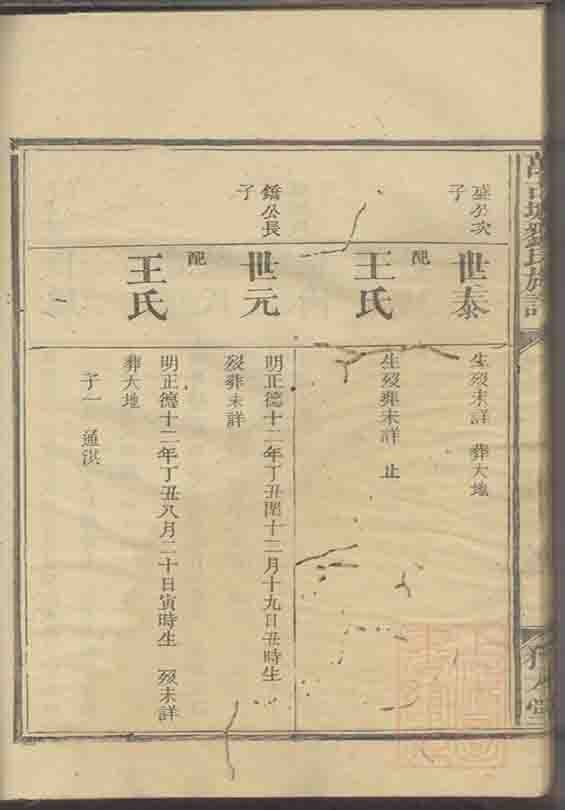 盛公次子
世泰
生歿未詳 葬大地
配
王氏
生歿葬未詳 止
鐇公長子
世元
明正德十二年丁丑閏十二月十九日丑時生
歿葬未詳
配
王氏
明正德十二年丁丑八月二十日寅時生 歿未詳
葬大地
子一 通淇
氏族譜